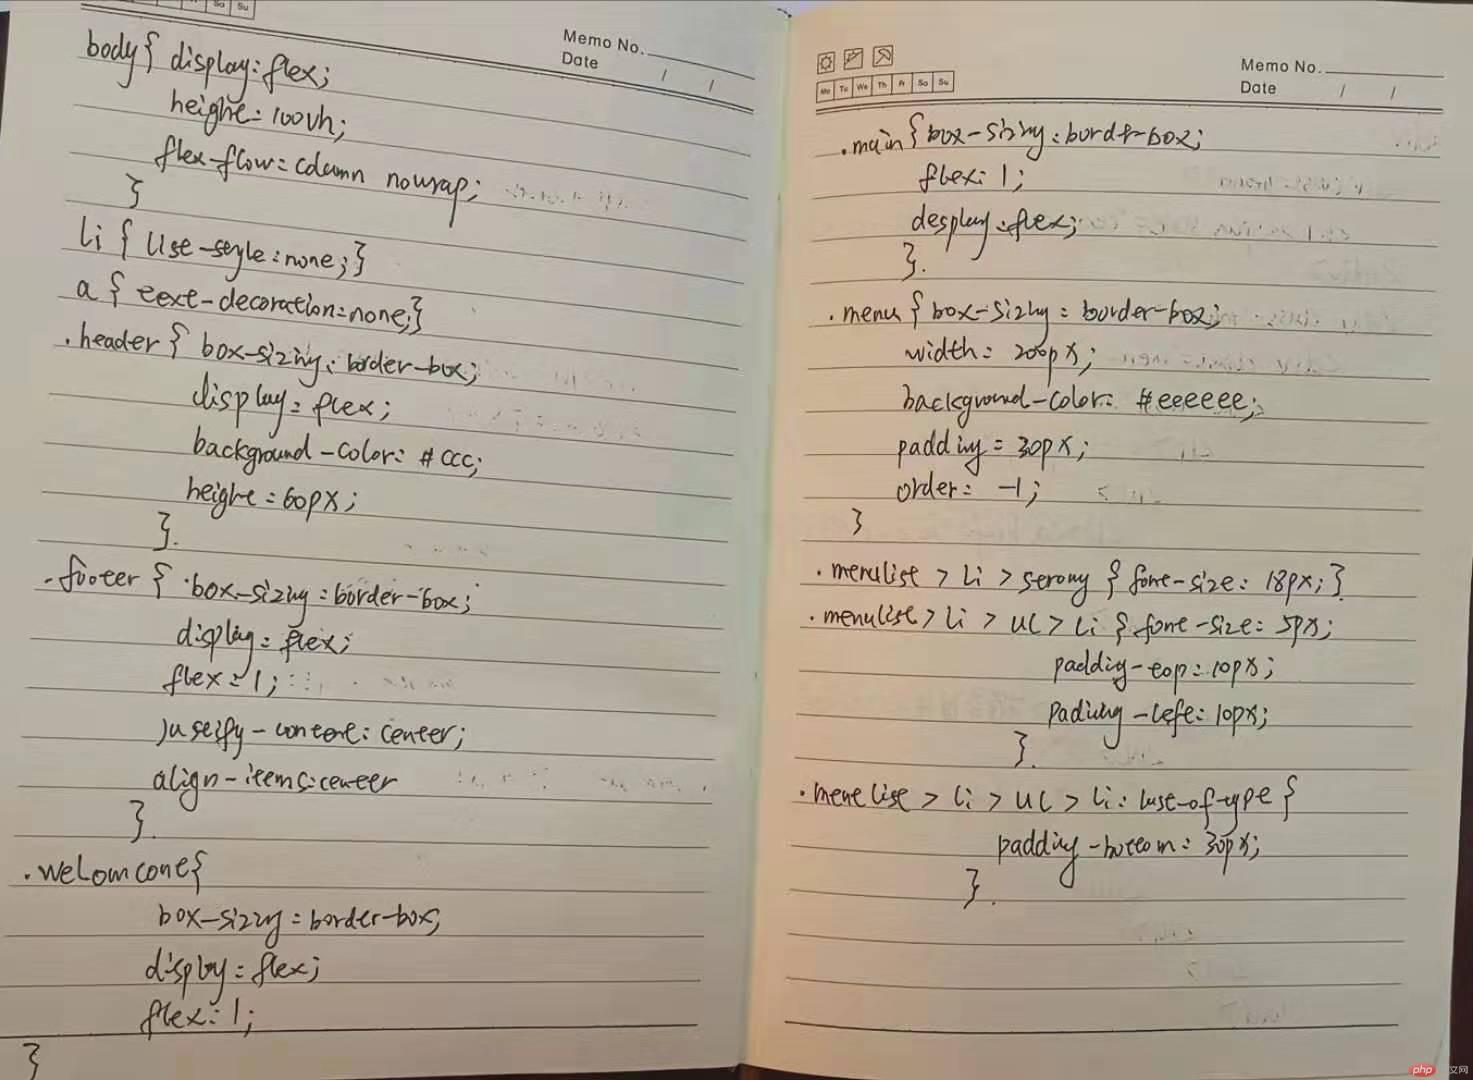 Sa Su
Memo No.
Date / /
body{ display:flex;
height:100vh;
flex-flow:column nowrap;
}
li { list-style:none;}
a { text-decoration:none;}
.header { box-sizing:border-box;
display:flex;
background-color:#ccc;
height:60px;
}.
.footer { box-sizing:border-box;
display:flex;
flex:1;
justify-content:center;
align-items:center
}.
.welomcone{
box-sizing:border-box;
display:flex;
flex:1;
}
Memo No.
Date / /
Mo Tu We Th Fr Sa Su
.main{box-sizing:border-box;
flex:1;
desplay:flex;
}.
.menu{ box-sizing:border-box;
width:200px;
background-color:#eeeeee;
padding:30px;
order:-1;
}
.menulist > li > strong { font-size:18px;}
.menulist > li > ul > li { font-size:5px;
padding-top:10px;
padding-left:10px;
}.
.menelist > li > ul > li:last-of-type {
padding-bottom:30px;
}.
php 中文网